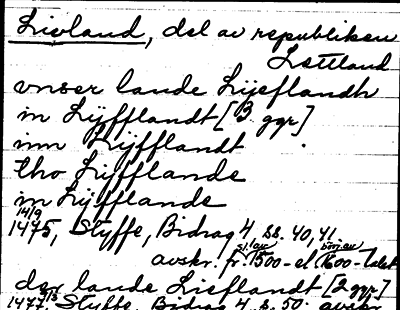 Livland, del av republiken
Lettland
vnser lande Lijeflandh
in Lÿfflandt [3 ggr]
inn Lÿfflandt
tho Liifflande
in Lÿfflande
14/9
1475, Styffe, Bidrag 4, ss. 40, 41.
avskr. fr. sl. av 1500- el. början av 1600-talet
der lande Lieflandt [2 ggr]
1477, Styffe, Bidrag 4 s. 50. avskr.